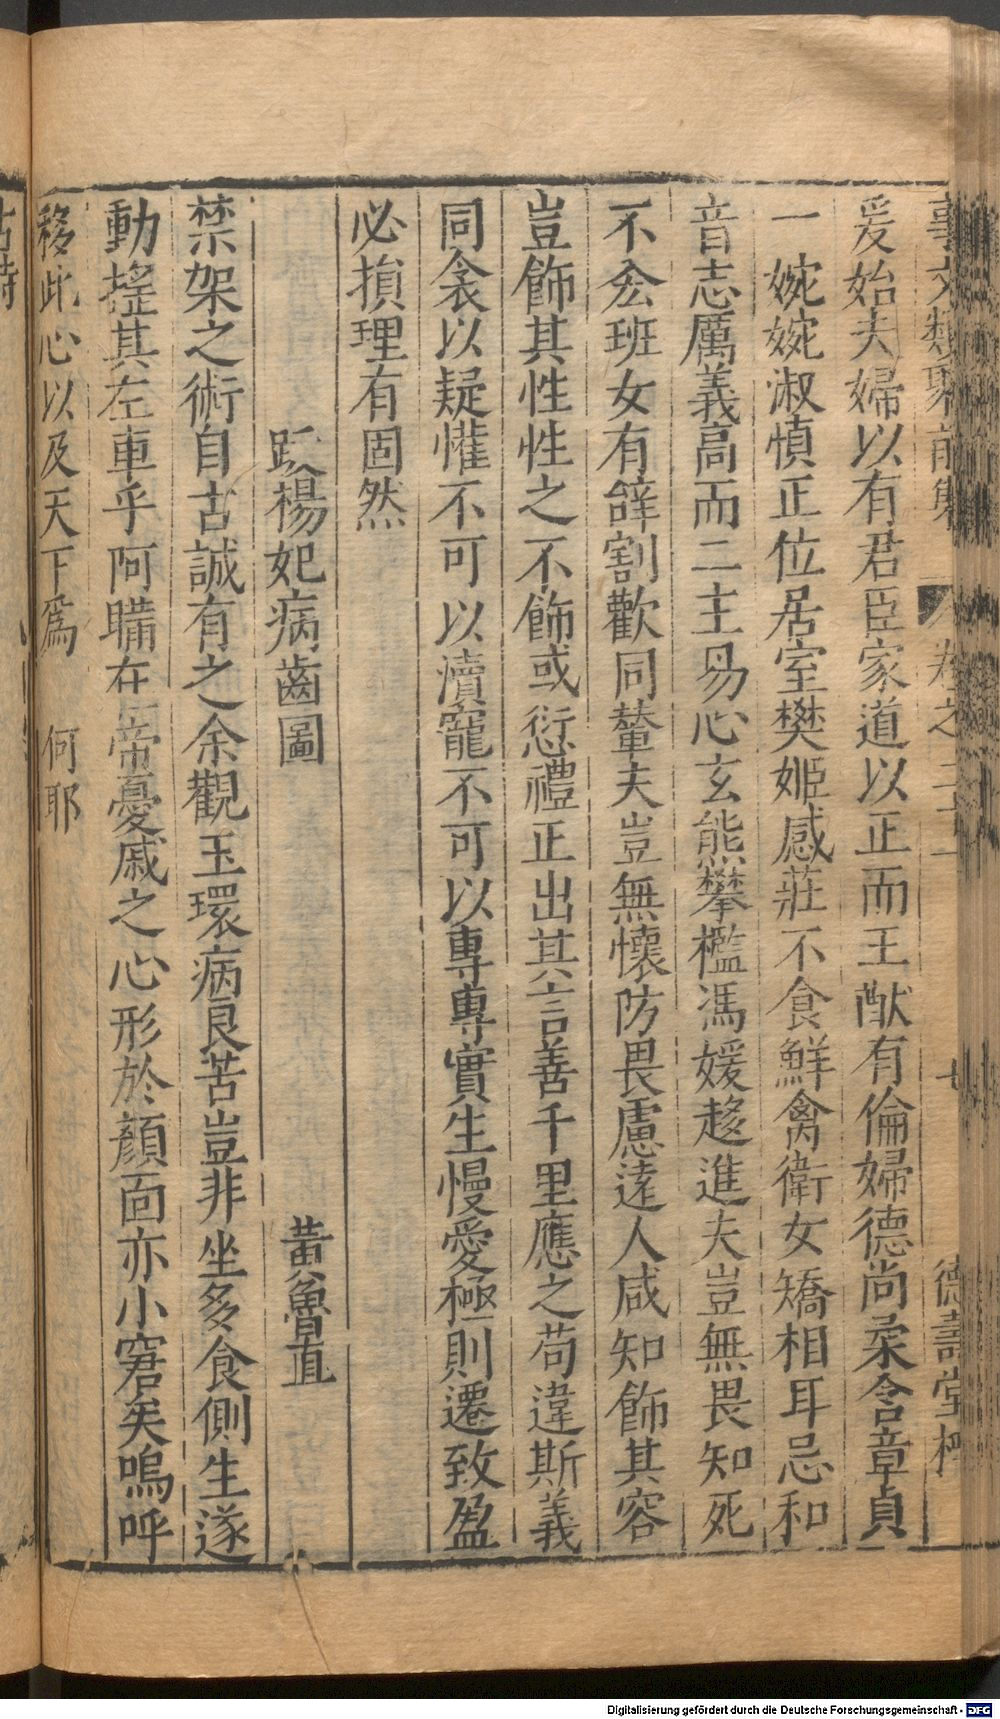 事文類聚前集 卷之二十一 七 德壽堂梓
爰始夫婦以有君臣家道以正而王猷有倫婦德尚柔含章貞
一婉婉淑慎正位居室樊姬感莊不食鮮禽衛女矯桓耳忌和
音志厲義高而二主易心玄熊攀檻馮媛趍進夫豈無畏知死
不恡班女有辝割歡同輦夫豈無懷防畏慮遠人咸知飾其容
豈飾其性性之不飾或愆禮正出其言善千里應之苟違斯義
同衾以疑懽不可以瀆寵不可以專專實生慢愛極則遷致盈
必損理有固然
跋楊妃病齒圖 黃魯直
禁架之術自古誠有之余觀玉環病良苦豈非坐多食側生遂
動搖其左車乎阿瞞在帝憂戚之心形於顏面亦小窘矣嗚呼
移此心以及天下爲 何耶
Digitalisierung gefördert durch die Deutsche Forschungsgemeinschaft - DFG